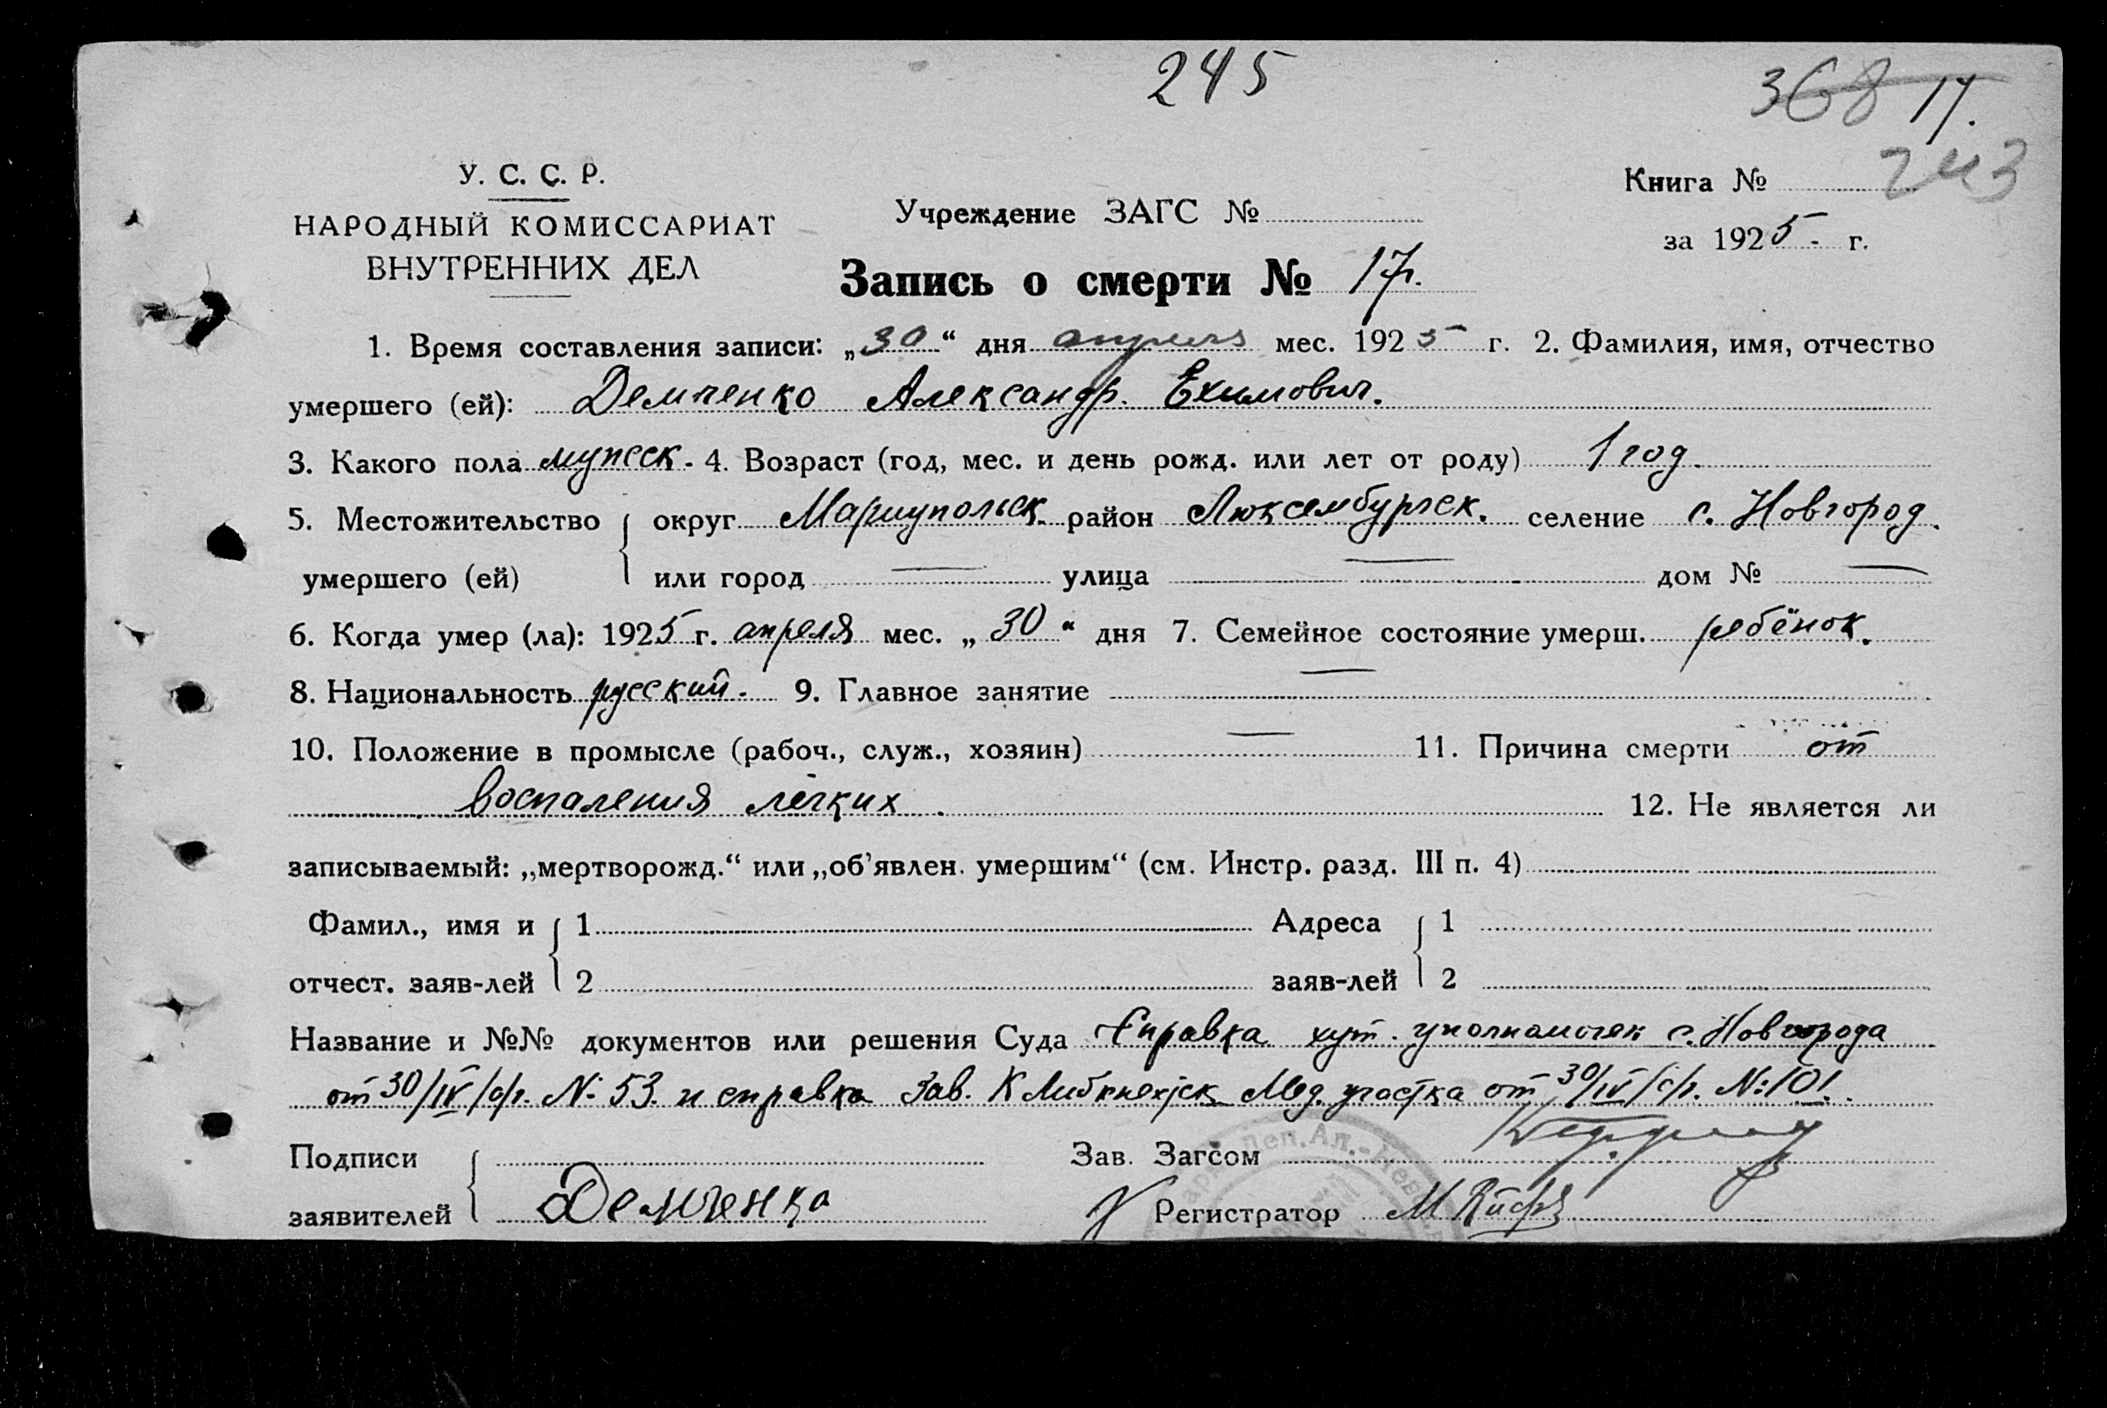 245
368 17.
У. С. С. Р.
Книга № 243
НАРОДНЫЙ КОМИССАРИАТ
Учреждение ЗАГС №
за 1925 г.
ВНУТРЕННИХ ДЕЛ
Запись о смерти № 17.
1. Время составления записи: „30“ дня апреля мес. 1925 г. 2. Фамилия, имя, отчество
умершего (ей): Демченко Александр. Ехимович.
3. Какого пола мужеск. 4. Возраст (год, мес. и день рожд. или лет от роду) 1 год.
5. Местожительство округ Мариупольск. район Люксембургск. селение с. Новгород.
умершего (ей) или город — улица — дом № —
6. Когда умер (ла): 1925 г. апреля мес. „30“ дня 7. Семейное состояние умерш. ребёнок.
8. Национальность русский. 9. Главное занятие —
10. Положение в промысле (рабоч., служ., хозяин) — 11. Причина смерти от
воспаления легких. 12. Не является ли
записываемый: „мертворожд.“ или „об’явлен. умершим“ (см. Инстр. разд. III п. 4)
Фамил., имя и 1 Адреса 1
отчест. заяв-лей 2 заяв-лей 2
Название и №№ документов или решения Суда Справка хут. уполномочен с. Новгорода
от 30/IV с/г. № 53 и справка Зав. К Либкнехтск Мед. участка от 30/IV с/г. №: 101.
Подписи Зав. Загсом
заявителей Демченко Регистратор М